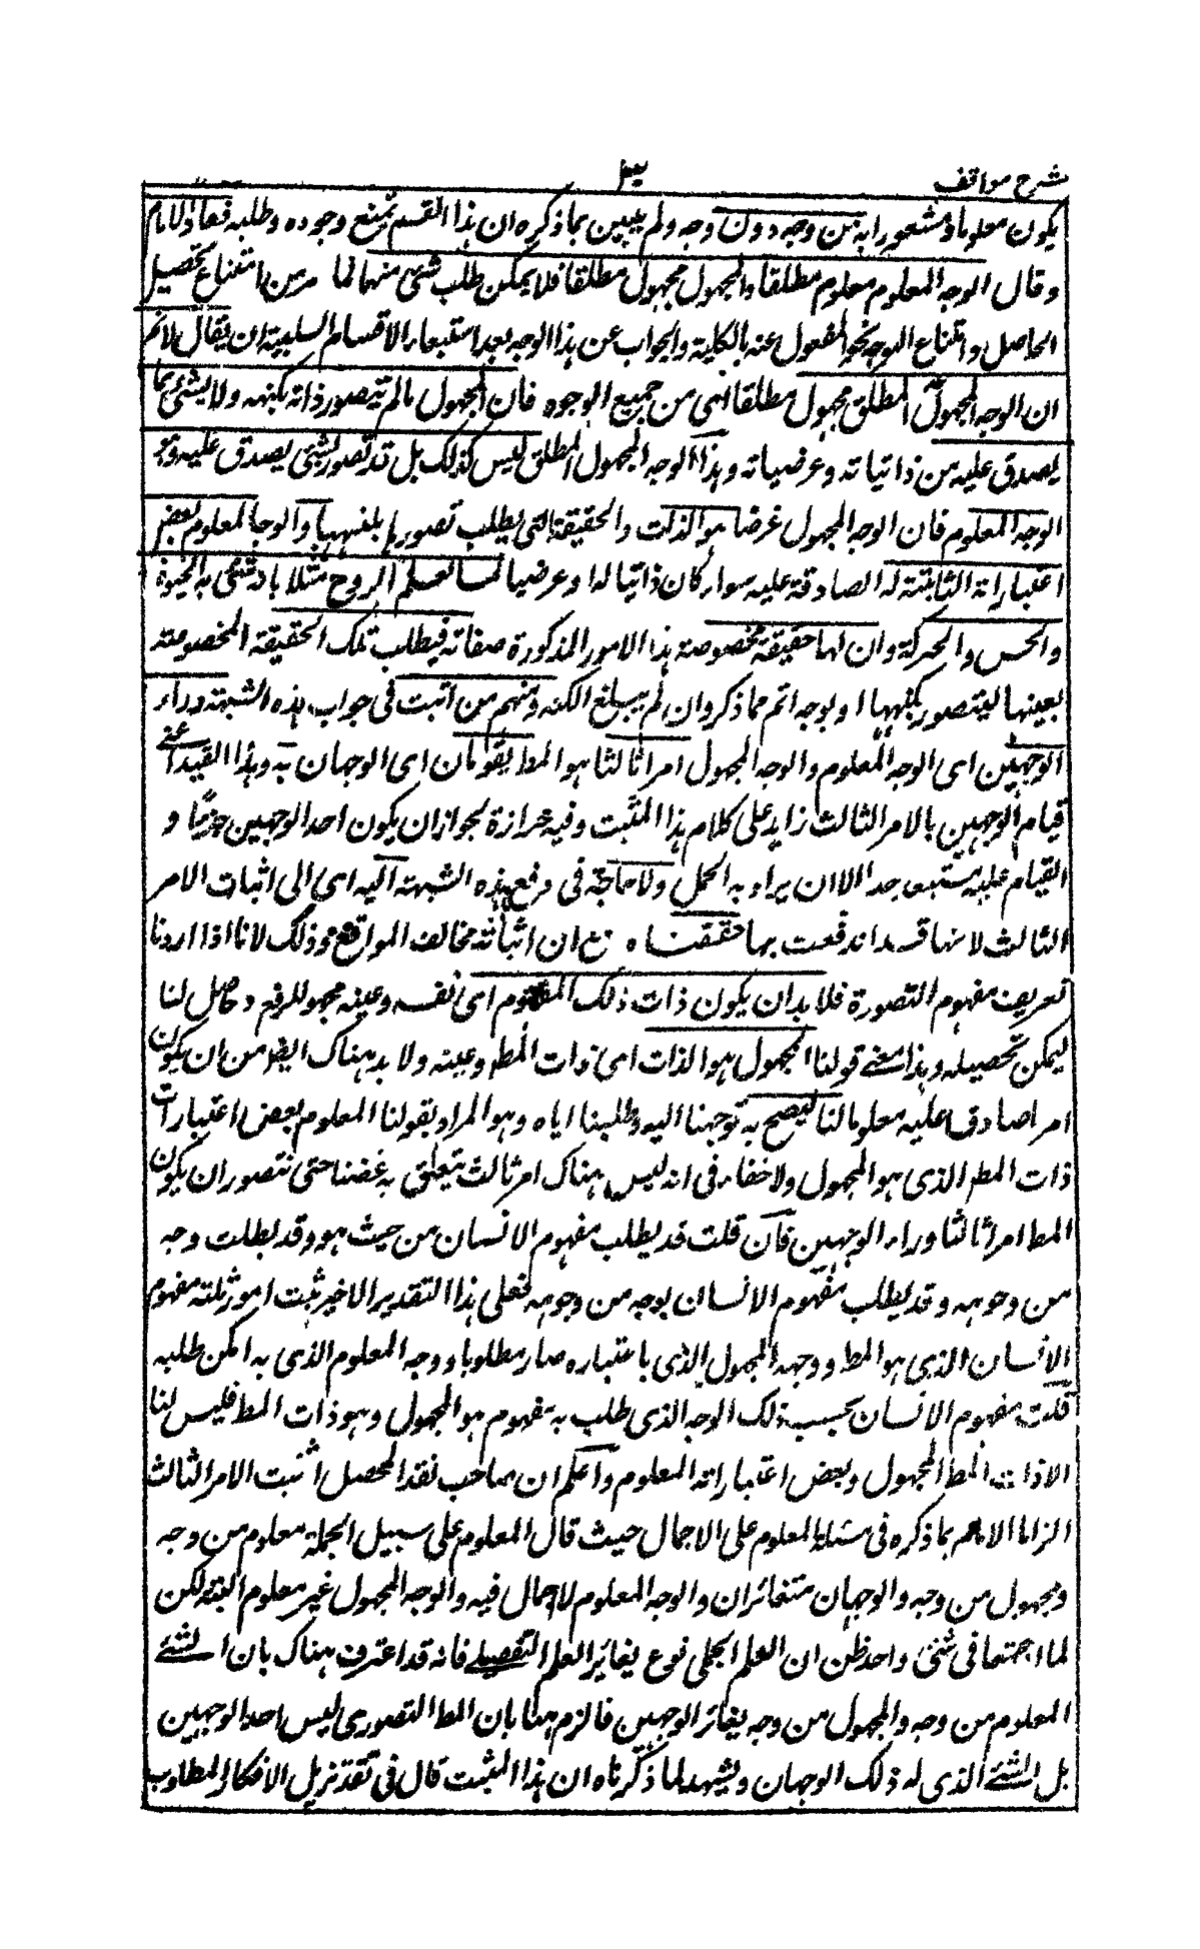 شرح مواقف
يكون معلوما و مشعورا به من وجه دون وجه ولم يتبين بما ذكره ان هذا القسم يمتنع وجوده وطلبه فعاد الامام
وقال الوجه المعلوم معلوم مطلقا والمجهول مجهول مطلقا فلا يمكن طلب شئ منهما لما مر من امتناع تحصيل
الحاصل وامتناع التوجه نحو المغفول عنه بالكلية والجواب عن هذا الوجه بعد استيعاب الاقسام السلبية ان يقال لا نم
ان الوجه المجهول المطلق مجهول مطلقا اى من جميع الوجوه فان المجهول ما لم يتصور ذاته بكنهه ولا بشئ مما
يصدق عليه من ذاتياته وعرضياته وهذا الوجه المجهول المطلق ليس كذلك بل قد تصور بشئ يصدق عليه وهو
الوجه المعلوم فان الوجه المجهول فرضا هو الذات والحقيقة التى يطلب تصورها بكنهها والوجه المعلوم بعض
اعتباراته الثابتة له الصادقة عليه سواء كان ذاتيا له او عرضيا كما نعلم الروح مثلا بانه شئ به الحيوة
والحس والحركة وان لها حقيقة مخصوصة هذه الامور المذكورة صفاته فيطلب تلك الحقيقة المخصوصة
بعينها ليتصور بكنهها او بوجه اتم مما ذكر وان لم يبلغ الكنه ومنهم من اثبت فى جواب هذه الشبهة وراء
الوجهين اى الوجه المعلوم والوجه المجهول امرا ثالثا هو المط يقومان اى الوجهان به وهذا القيد اعنى
قيام الوجهين بالامر الثالث زايد على كلام هذا المثبت وفيه حزازة لجواز ان يكون احد الوجهين جزءا و
القيام عليه مستبعد جدا الا ان يراد به الحمل ولا حاجة فى دفع هذه الشبهة اليه اى الى اثبات الامر
الثالث لانها قد اندفعت بما حققناه نع ان اثباته مخالف الواقع وذلك لانا اذا اردنا
تعريف مفهوم التصورة فلا بد ان يكون ذات ذلك المفهوم اى نفسه وعينه مجهولا غير حاصل لنا
ليمكن تحصيله وهذا معنى قولنا المجهول هو الذات اى ذات المط وعينه ولا بد هناك ايضا من ان يكون
امر صادق عليه معلوما لنا ليصح به توجهنا اليه وطلبنا اياه وهو المراد بقولنا المعلوم بعض اعتبارات
ذات المط الذى هو المجهول ولا خفاء فى انه ليس هناك امر ثالث يتعلق به غرضنا حتى نتصور ان يكون
المط امرا ثالثا وراء الوجهين فان قلت قد يطلب مفهوم الانسان من حيث هو وقد يطلب وجه
من وجوهه وقد يطلب مفهوم الانسان بوجه من وجوهه فعلى هذا التقدير الاخير ثبت امور ثلثة مفهوم
الانسان الذى هو المط ووجهه المجهول الذى باعتباره صار مطلوبا ووجه المعلوم الذى به امكن طلبه
قلت مفهوم الانسان بحسب ذلك الوجه الذى طلب به مفهوم هو المجهول وهو ذات المط فليس لنا
الا ذات المط المجهول وبعض اعتباراته المعلوم واعلم ان صاحب نقد المحصل اثبت الامر الثالث
الزاما للامام بما ذكره فى مسئلة المعلوم على الاجمال حيث قال المعلوم على سبيل الجملة معلوم من وجه
ومجهول من وجه والوجهان متغائران والوجه المعلوم لا اجمال فيه والوجه المجهول غير معلوم البتة لكن
لما اجتمعا فى شئ واحد ظن ان العلم الجملى نوع يغائر العلم التفصيلى فانه قد اعترف هناك بان الشئ
المعلوم من وجه والمجهول من وجه يغائر الوجهين فالزم ههنا بان المط التصورى ليس احد الوجهين
بل الشئ الذى له ذلك الوجهان ويشهد لما ذكرناه ان هذا المثبت قال فى نقد تنزيل الافكار المطلوب